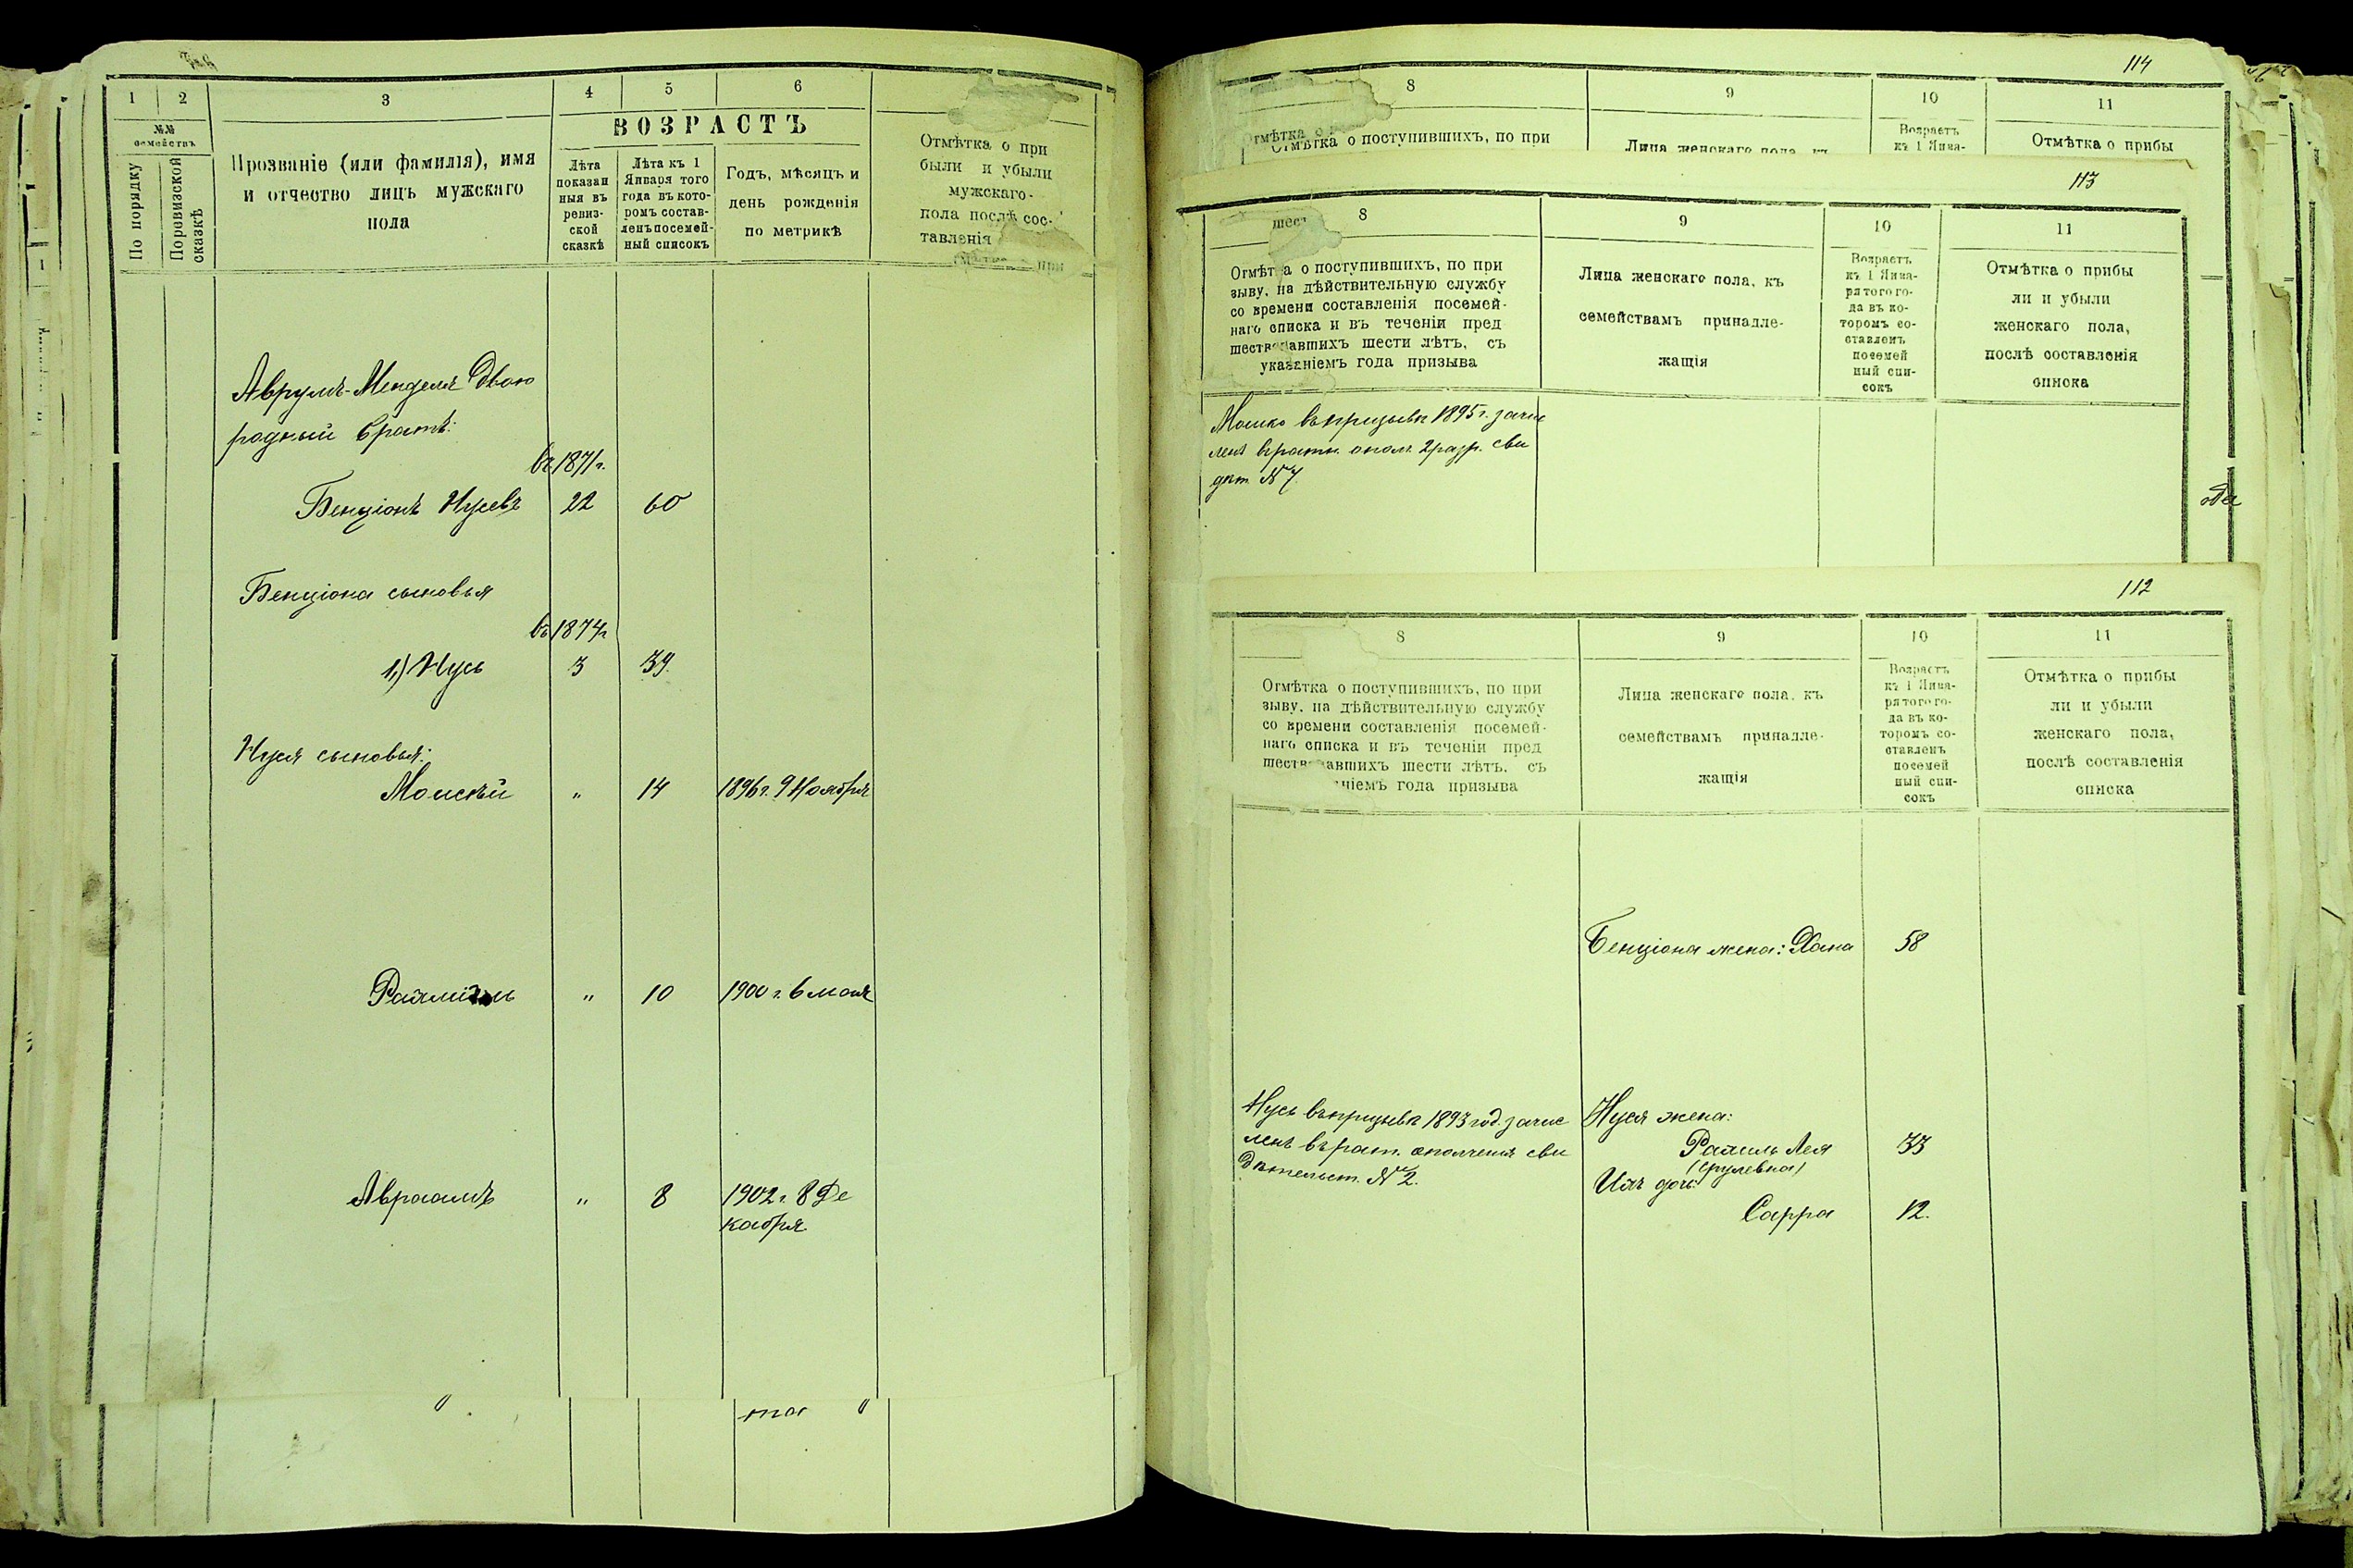 1 2 3 4 5 6
№№ семействъ
По порядку
По ревизской сказкѣ
Прозваніе (или фамилія), имя
и отчество лицъ мужскаго
пола
ВОЗРАСТЪ
Лѣта
показан
ныя въ
ревиз-
ской
сказкѣ
Лѣта къ 1
Января того
года въ кото-
ромъ состав-
ленъ посемей-
ный списокъ
Годъ, мѣсяцъ и
день рожденія
по метрикѣ
Отмѣтка о при
были и убыли
мужскаго
пола послѣ сос-
тавленія
Аврумъ-Менделя двою
родный братъ:
въ 1871 г.
Бенціонъ Нусевъ 22 60
Бенціона сыновья
въ 1874 г
1,) Нусь 3 39.
Нуся сыновья:
Моисей " 14 1896 г. 9 Ноября
" 10 1900 г. 6 мая
Авраамъ " 8 1902 г. 8 Де
кабря
та
114
8 9 10 11
Отмѣтка о поступившихъ, по при
Лица женскаго пола, къ
Возрастъ
къ 1 Янва-
Отмѣтка о прибы
113
8 9 10 11
Отмѣтка о поступившихъ, по при
зыву, на дѣйствительную службу
со времени составленія посемей-
наго списка и въ теченіи пред
шествовавшихъ шести лѣтъ, съ
указаніемъ года призыва
Лица женскаго пола, къ
семействамъ принадле-
жащія
Возрастъ
къ 1 Янва-
ря того го-
да въ ко-
торомъ со-
ставленъ
посемей
ный спи-
сокъ
Отмѣтка о прибы
ли и убыли
женскаго пола,
послѣ составленія
списка
Мошко въ призывъ 1895 г. зачис
ленъ въ ратн. опол. 2 разр. сви
дѣт. № 7.
112
8 9 10 11
Отмѣтка о поступившихъ, по при
зыву, на дѣйствительную службу
со времени составленія посемей-
наго списка и въ теченіи пред
шествовавшихъ шести лѣтъ, съ
ніемъ года призыва
Лица женскаго пола, къ
семействамъ принадле-
жащія
Возрастъ
къ 1 Янва-
ря того го-
да въ ко-
торомъ со-
ставленъ
посемей
ный спи-
сокъ
Отмѣтка о прибы
ли и убыли
женскаго пола,
послѣ составленія
списка
Бенціона жена: Хана 58
Нусь въ призывъ 1893 год. зачис
ленъ въ рат. ополченія сви
дѣтельст. № 2.
Нуся жена:
Рахиль Лея 33
(Срулевна)
Ихъ дочь:
Сарра 12.